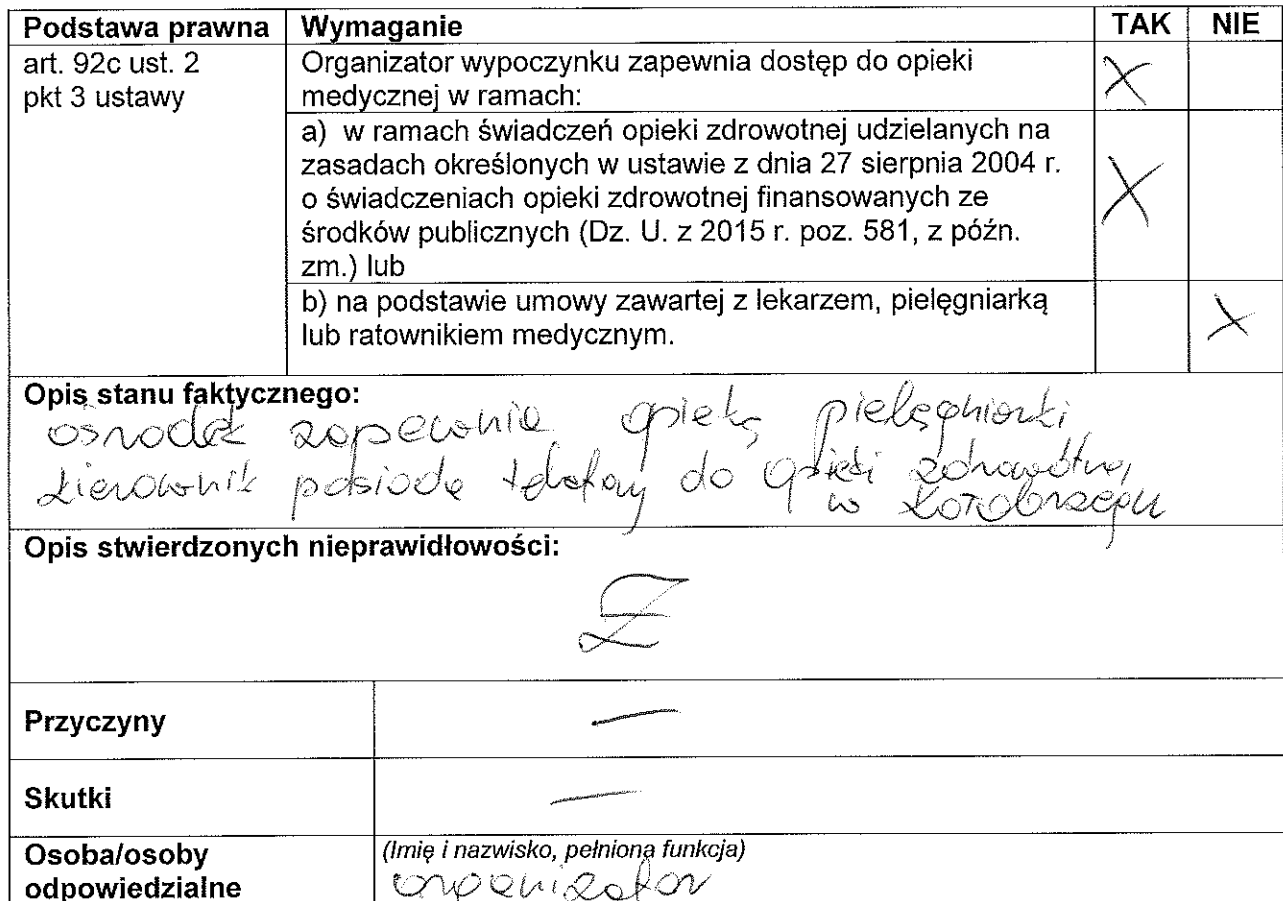 Podstawa prawna Wymaganie TAK NIE
art. 92c ust. 2
pkt 3 ustawy
Organizator wypoczynku zapewnia dostęp do opieki
medycznej w ramach: X
a) w ramach świadczeń opieki zdrowotnej udzielanych na
zasadach określonych w ustawie z dnia 27 sierpnia 2004 r.
o świadczeniach opieki zdrowotnej finansowanych ze X
środków publicznych (Dz. U. z 2015 r. poz. 581, z późn.
zm.) lub
b) na podstawie umowy zawartej z lekarzem, pielęgniarką
lub ratownikiem medycznym. X
Opis stanu faktycznego:
ośrodek zapewnia opiekę pielęgniarki,
kierownik posiada telefony do opieki zdrowotnej
w Kołobrzegu
Opis stwierdzonych nieprawidłowości:
Przyczyny —
Skutki —
Osoba/osoby
odpowiedzialne
(Imię i nazwisko, pełniona funkcja)
organizator